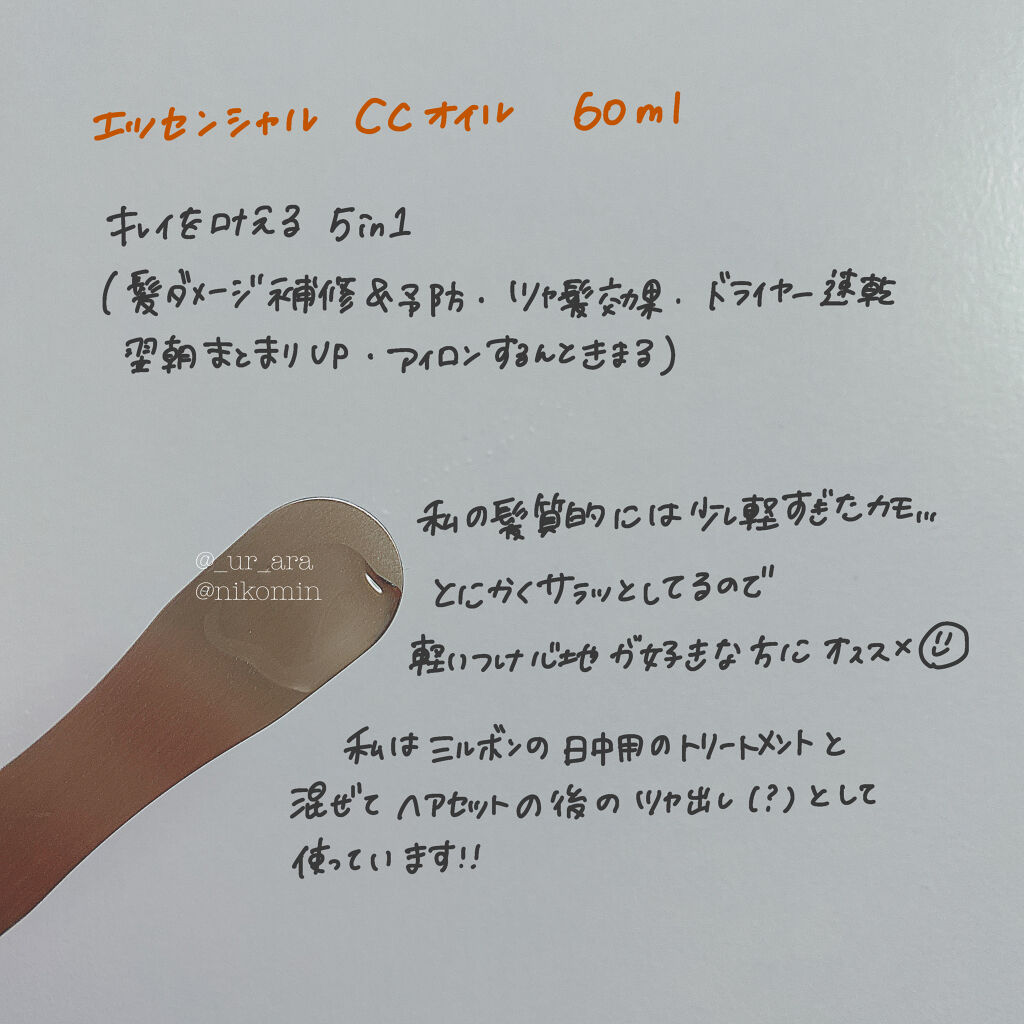 エッセンシャル CCオイル 60ml
キレイを叶える 5in1
(髪ダメージ補修&予防・ツヤ髪効果・ドライヤー速乾
翌朝まとまりUP・アイロンするんときまる)
私の髪質的には少し軽すぎたカモ...
とにかくサラッとしてるので
軽いつけ心地が好きな方にオススメ
@_ur_ara
@nikomin
私はミルボンの日中用のトリートメントと
混ぜてヘアセットの後のツヤ出し(?)として
使っています!!